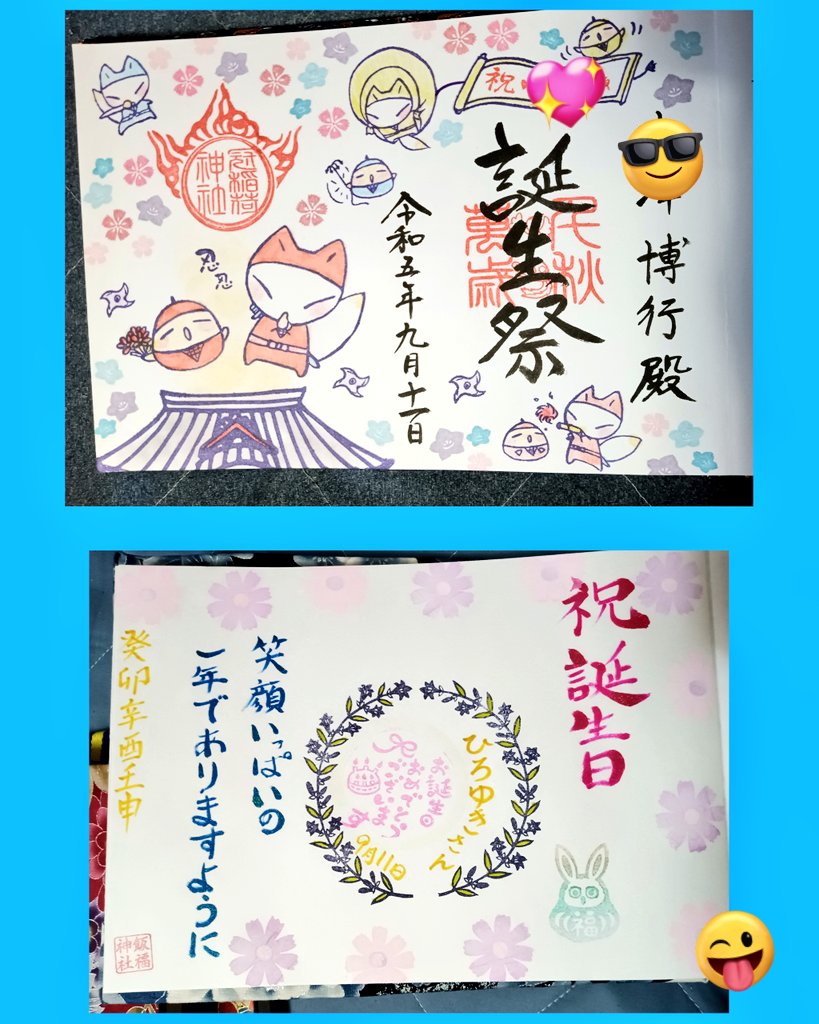 博行殿
祝
誕生祭
千秋
萬歳
令和五年九月十一日
忍忍
神社
祝誕生日
ひろゆきさん
お誕生日
おめでとう
ございます
9月11日
福
笑顔いっぱいの
一年でありますように
癸卯辛酉壬申
飯福
神社